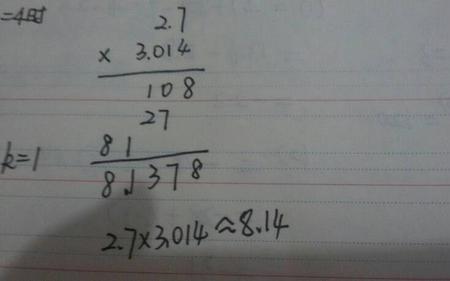 =4时
2.7
× 3.014
108
27
k=1
81
8.1378
2.7×3.014≈8.14